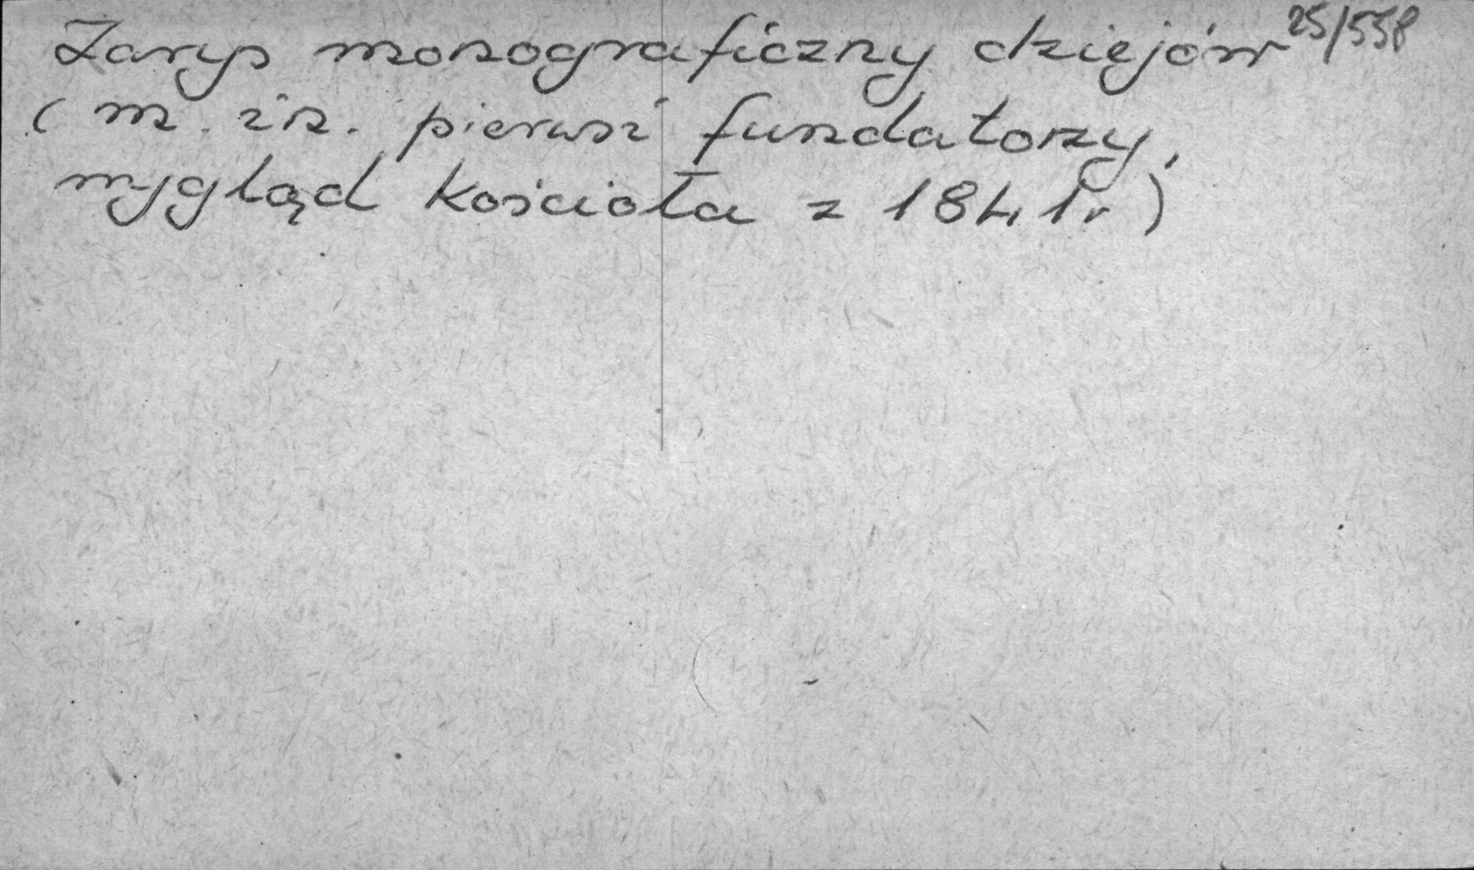 Zarys monograficzny dziejów 25/558
(m. in. pierwsi fundatorzy,
wygląd kościoła z 1841r)